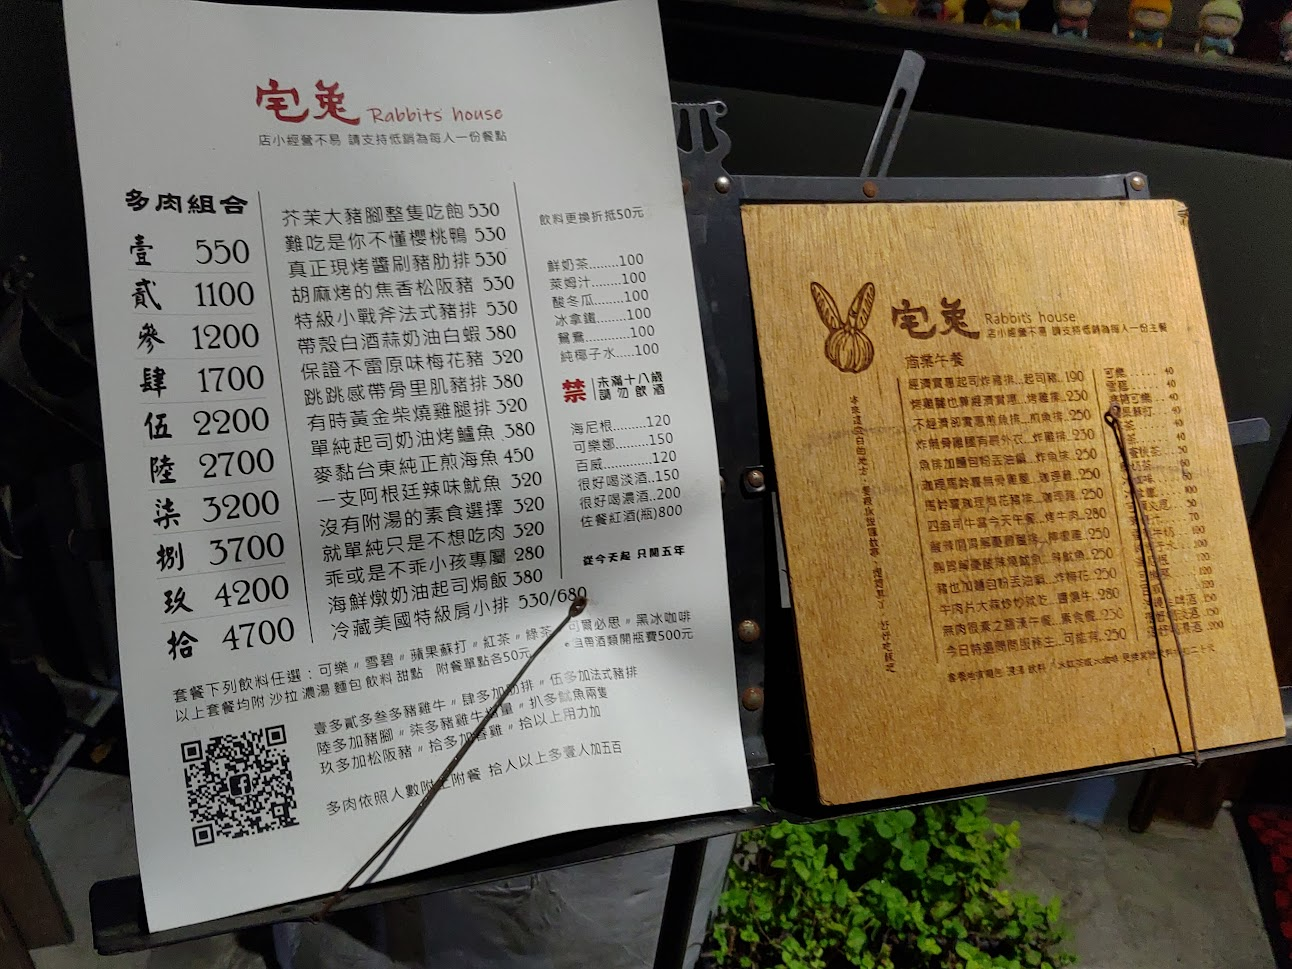 宅兎 Rabbits house
店小經營不易 請支持低銷為每人一份餐點
多肉組合
壹 550
貳 1100
參 1200
肆 1700
伍 2200
陸 2700
柒 3200
捌 3700
玖 4200
拾 4700
芥茉大豬腳整隻吃飽 530
難吃是你不懂櫻桃鴨 530
真正現烤醬刷豬肋排 530
胡麻烤的焦香松阪豬 530
特級小戰斧法式豬排 530
帶殼白酒蒜奶油白蝦 380
保證不雷原味梅花豬 320
跳跳感帶骨里肌豬排 380
有時黃金柴燒雞腿排 320
單純起司奶油烤鱸魚 380
麥黏台東純正煎海魚 450
一支阿根廷辣味魷魚 320
沒有附湯的素食選擇 320
就單純只是不想吃肉 320
乖或是不乖小孩專屬 280
海鮮燉奶油起司焗飯 380
冷藏美國特級肩小排 530/680
飲料更換折抵50元
鮮奶茶........100
萊姆汁........100
酸冬瓜........100
冰拿鐵........100
鴛鴦..........100
純椰子水.....100
禁 未滿十八歲
請勿飲酒
海尼根.........120
可樂娜.........150
百威............120
很好喝淡酒..150
很好喝濃酒..200
佐餐紅酒(瓶)800
從今天起 只開五年
套餐下列飲料任選：可樂〃雪碧〃蘋果蘇打〃紅茶〃綠茶 可爾必思〃黑冰咖啡
以上套餐均附 沙拉 濃湯 麵包 飲料 甜點 附餐單點各50元 自帶酒類開瓶費500元
壹多貳多叁多豬雞牛〃肆多加肋排〃伍多加法式豬排
陸多加豬腳〃柒多豬雞牛 量〃扒多魷魚兩隻
玖多加松阪豬〃拾多加春雞〃拾以上用力加
多肉依照人數附上附餐 拾人以上多壹人加五百
宅兎 Rabbits house
店小經營不易 請支持低銷為每人一份主餐
商業午餐
經濟實惠起司炸豬排...起司豬..190
烤雞腿也算經濟實惠...烤雞排..230
不經濟卻實惠煎魚排...煎魚排..250
炸無骨雞腿有層外衣...炸雞排..230
魚排加麵包粉丟油鍋...炸魚排..250
咖哩馬鈴薯無骨雞腿...咖哩雞..250
馬鈴薯咖哩梅花豬排...咖哩豬..250
四盎司牛當今天午餐...烤牛肉..280
豬也加麵包粉丟油鍋...炸梅花..250
牛肉片大蒜炒炒就吃...醬爆牛..280
無肉很素之羅漢午餐...素食餐..230
今日特選問問服務生...可能有..250
可樂 40
雪碧 40